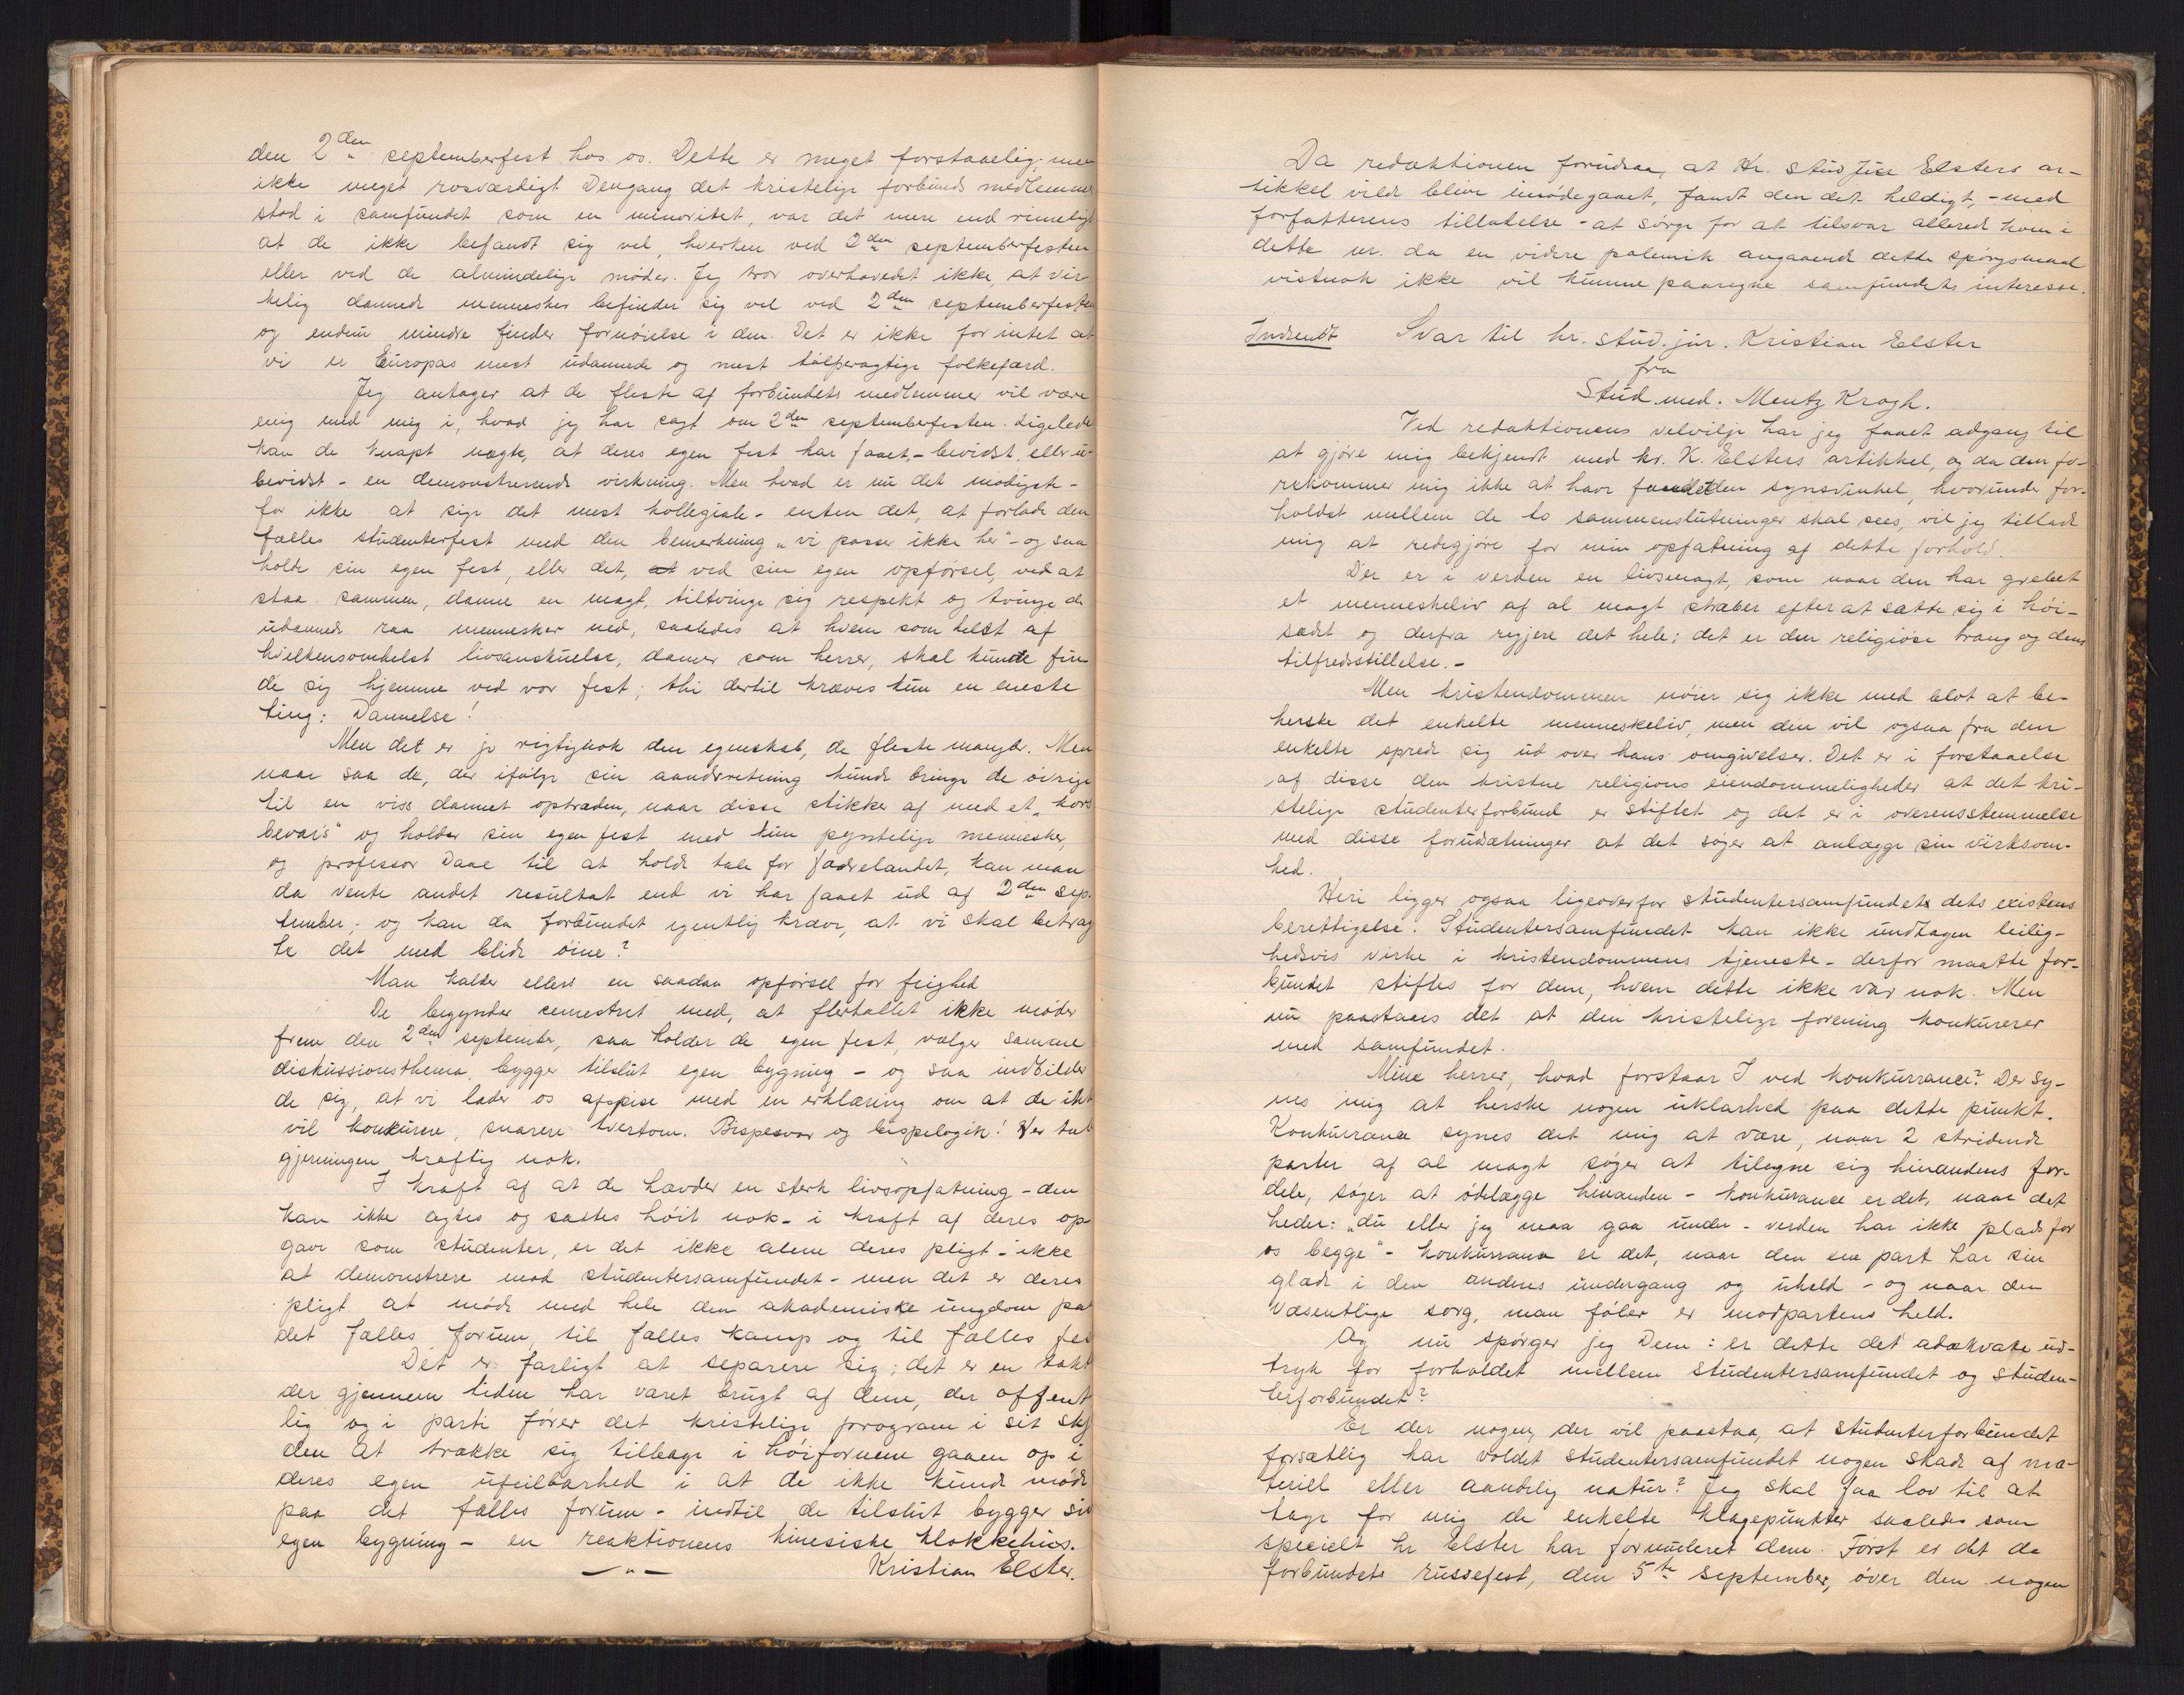 den 2den septemberfest hos os. Dette er meget forstaaelig; men
ikke meget rosværdigt Dengang det kristelige forbunds medlemmer
stod i samfundet som en minoritet, var det mere end rimeligt
at de ikke befandt sig vel, hverken ved 2den septemberfesten
eller ved de almindelige møder. Jeg tror overhovedet ikke, at vir-
kelig dannede mennesker befinder sig vel ved 2den septemberfesten
og endnu mindre finder fornøielse i den. Det er ikke for intet at
vi er Europas mest udannede og mest tølperagtige folkefærd.
Jeg antager at de fleste af forbundets medlemmer vil være
enig med mig i, hvad jeg har sagt om 2den septemberfesten. Ligeledes
kan de knapt nægte, at deres egen fest har faaet, - bevidst, eller u-
bevidst - en demonstrerende virkning. Men hvad er nu det modigste -
for ikke at sige det mest kollegiale - enten det, at forlade den
fælles studenterfest med den bemerkning „vi passer ikke her" - og saa
holde sin egen fest, eller det, at ved sin egen opførsel, ved at
staa sammen, danne en magt, tiltvinge sig respekt og tvinge de
udannede raa mennesker ned, saaledes at hvem som helst af
hvilkensomhelst livsanskuelse, damer som herrer, skal kunde fin-
de sig hjemme ved vor fest; thi dertil kræves kun en eneste
ting: Dannelse!
Men det er jo rigtignok den egenskab, de fleste mangler. Men
naar saa de, der ifølge sin aandsretning kunde bringe de øvrige
til en viss dannet optræden, naar disse stikker af med et „kors
bevar's" og holder sin egen fest med kun pyntelige mennesker,
og professor Daae til at holde tale for fædrelandet, kan man
da vente andet resultat end vi har faaet ud af 2den sep-
tember; og kan da forbundet egentlig kræve, at vi skal betrag
te det med blide øine?
Man kalder ellers en saadan opførsel for feighed
De begynder semestret med, at flertallet ikke møder
frem den 2den september, saa holder de egen fest, vælger samme
diskussionsthema, bygger tilslut egen bygning - og saa indbilder
de sig, at vi lader os afspise med en erklæring om at de ikke
vil konkurere, snarere tvertom. Bispesvar og bispelogik! Her taler
gjerningen kraftig nok.
I kraft af at de hævder en sterk livsopfatning - den
kan ikke agtes og sættes høit nok - i kraft af deres op-
gave som studenter, er det ikke alene deres pligt - ikke
at demonstrere mod studentersamfundet - men det er deres
pligt at møde med hele den akademiske ungdom paa
det fælles forum, til fælles kamp og til fælles fest
Det er farligt at separere sig; det er en takt
der gjennem tiden har været brugt af dem, der offent
lig og i parti fører det kristelige program i sit skj
den At trække sig tilbage i høifornem gaaen op i
deres egen ufeilbarhed i at de ikke kunde møde
paa det fælles forum - indtil de tilslut bygger sin
egen bygning - en reaktionens kinesiske klokkehus.
Kristian Elster.
Da redaktionen forudsaa, at Hr. stud jur Elsters ar-
tikkel vilde blive imødegaaet, fandt den det heldigt, - med
forfatterens tilladelse - at sørge for at tilsvar allerede kom i
dette nr. da en videre polemik angaaende dette spørgsmaal
vistnok ikke vil kunne paaregne samfundets interesse.
Indsendt Svar til hr. stud. jur. Kristian Elster
fra
Stud. med. Mentz Krogh.
Ved redaktionens velvilje har jeg faaet adgang til
at gjøre mig bekjendt med hr. K. Elsters artikkel, og da den fo-
rekommer mig ikke at have fundet den synsvinkel, hvorunder for-
holdet mellem de to sammenslutninger skal sees, vil jeg tillade
mig at redegjøre for min opfatning af dette forhold.
Der er i verden en livsmagt, som naar den har grebet
et menneskeliv af al magt stræber efter at sætte sig i høi-
sædet og derfra regjere det hele; det er den religiøse trang og dens
tilfredsstillelse. -
Men kristendommen nøier sig ikke med blot at be-
herske det enkelte menneskeliv, men den vil ogsaa fra den
enkelte sprede sig ud over hans omgivelser. Det er i forstaaelse
af disse den kristne religions eiendommeligheder at det kri-
stelige studenterforbund er stiftet og det er i overensstemmelse
med disse forudsætninger at det søger at anlægge sin virksom-
hed.
Heri ligger ogsaa ligeoverfor studentersamfundets dets existens
berettigelse. Studentersamfundet kan ikke undtagen leilig-
hedsvis virke i kristendommens tjeneste - derfor maatte for-
bundet stiftes for dem, hvem dette ikke var nok. Men
nu paastaaes det at den kristelige forening konkurerer
med samfundet.
Mine herrer, hvad forstaar I ved konkurrance? Der sy-
nes mig at herske nogen uklarhed paa dette punkt.
Konkurrance synes det mig at være, naar 2 stridende
parter af al magt søger at tilegne sig hinandens for-
dele, søger at ødelægge hinanden - konkurance er det, naar det
heder: „du eller jeg maa gaa under - verden har ikke plads for
os begge" - konkurrance er det, naar den ene part har sin
glæde i den andens undergang og uheld - og naar den
væsentlige sorg, man føler er modpartens held.
Og nu spørger jeg Dem: er dette det adækvate ud-
tryk for forholdet mellem studentersamfundet og studen-
terforbundet?
Er der nogen, der vil paastaa, at studenterforbundet
forsætlig har voldet studentersamfundet nogen skade af ma-
teriel eller aandelig natur? Jeg skal faa lov til at
tage for mig de enkelte klagepunkter saaledes som
specielt hr Elster har formuleret dem. Først er det da
forbundets russefest, den 5te september, over den nogen